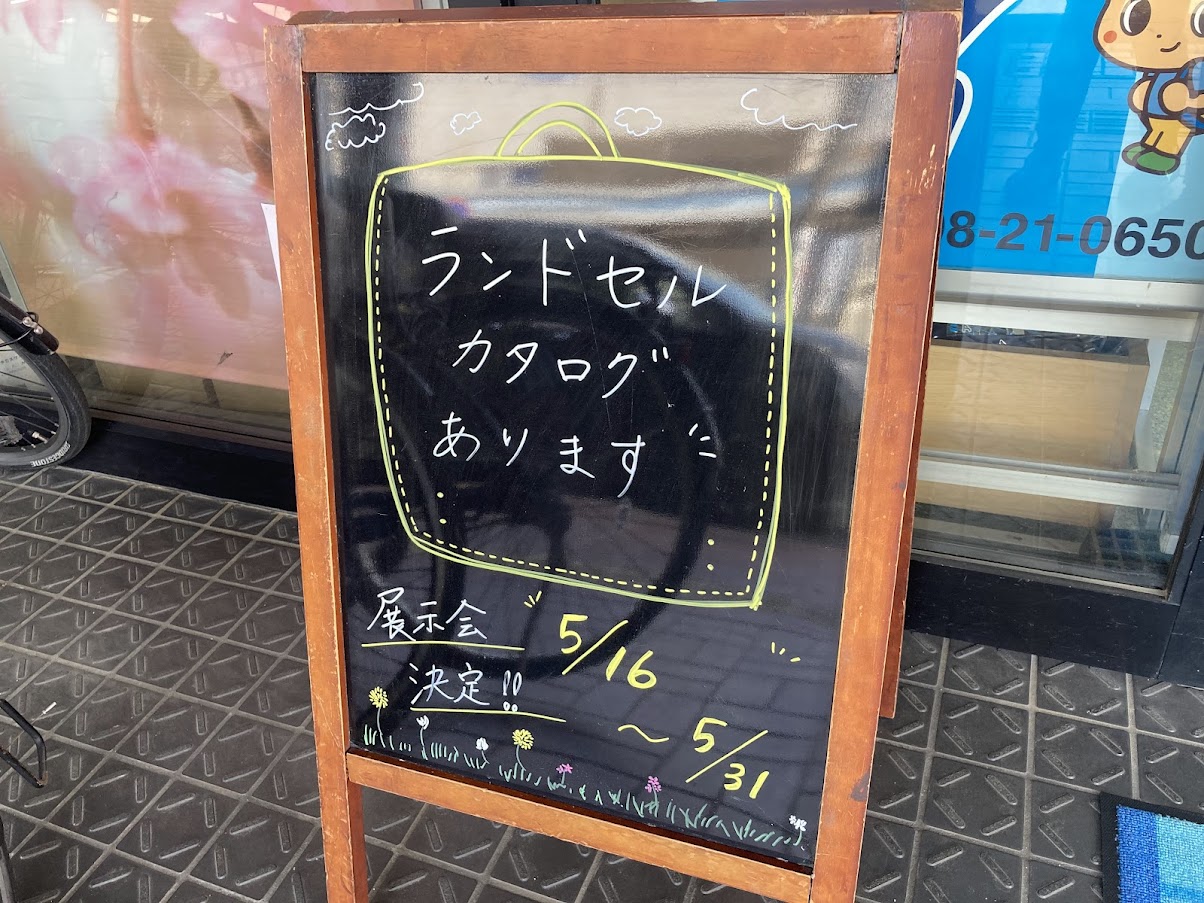 ランドセル
カタログ
あります
展示会
決定!!
5/16
～5/31
8-21-0650
BRIDGESTONE